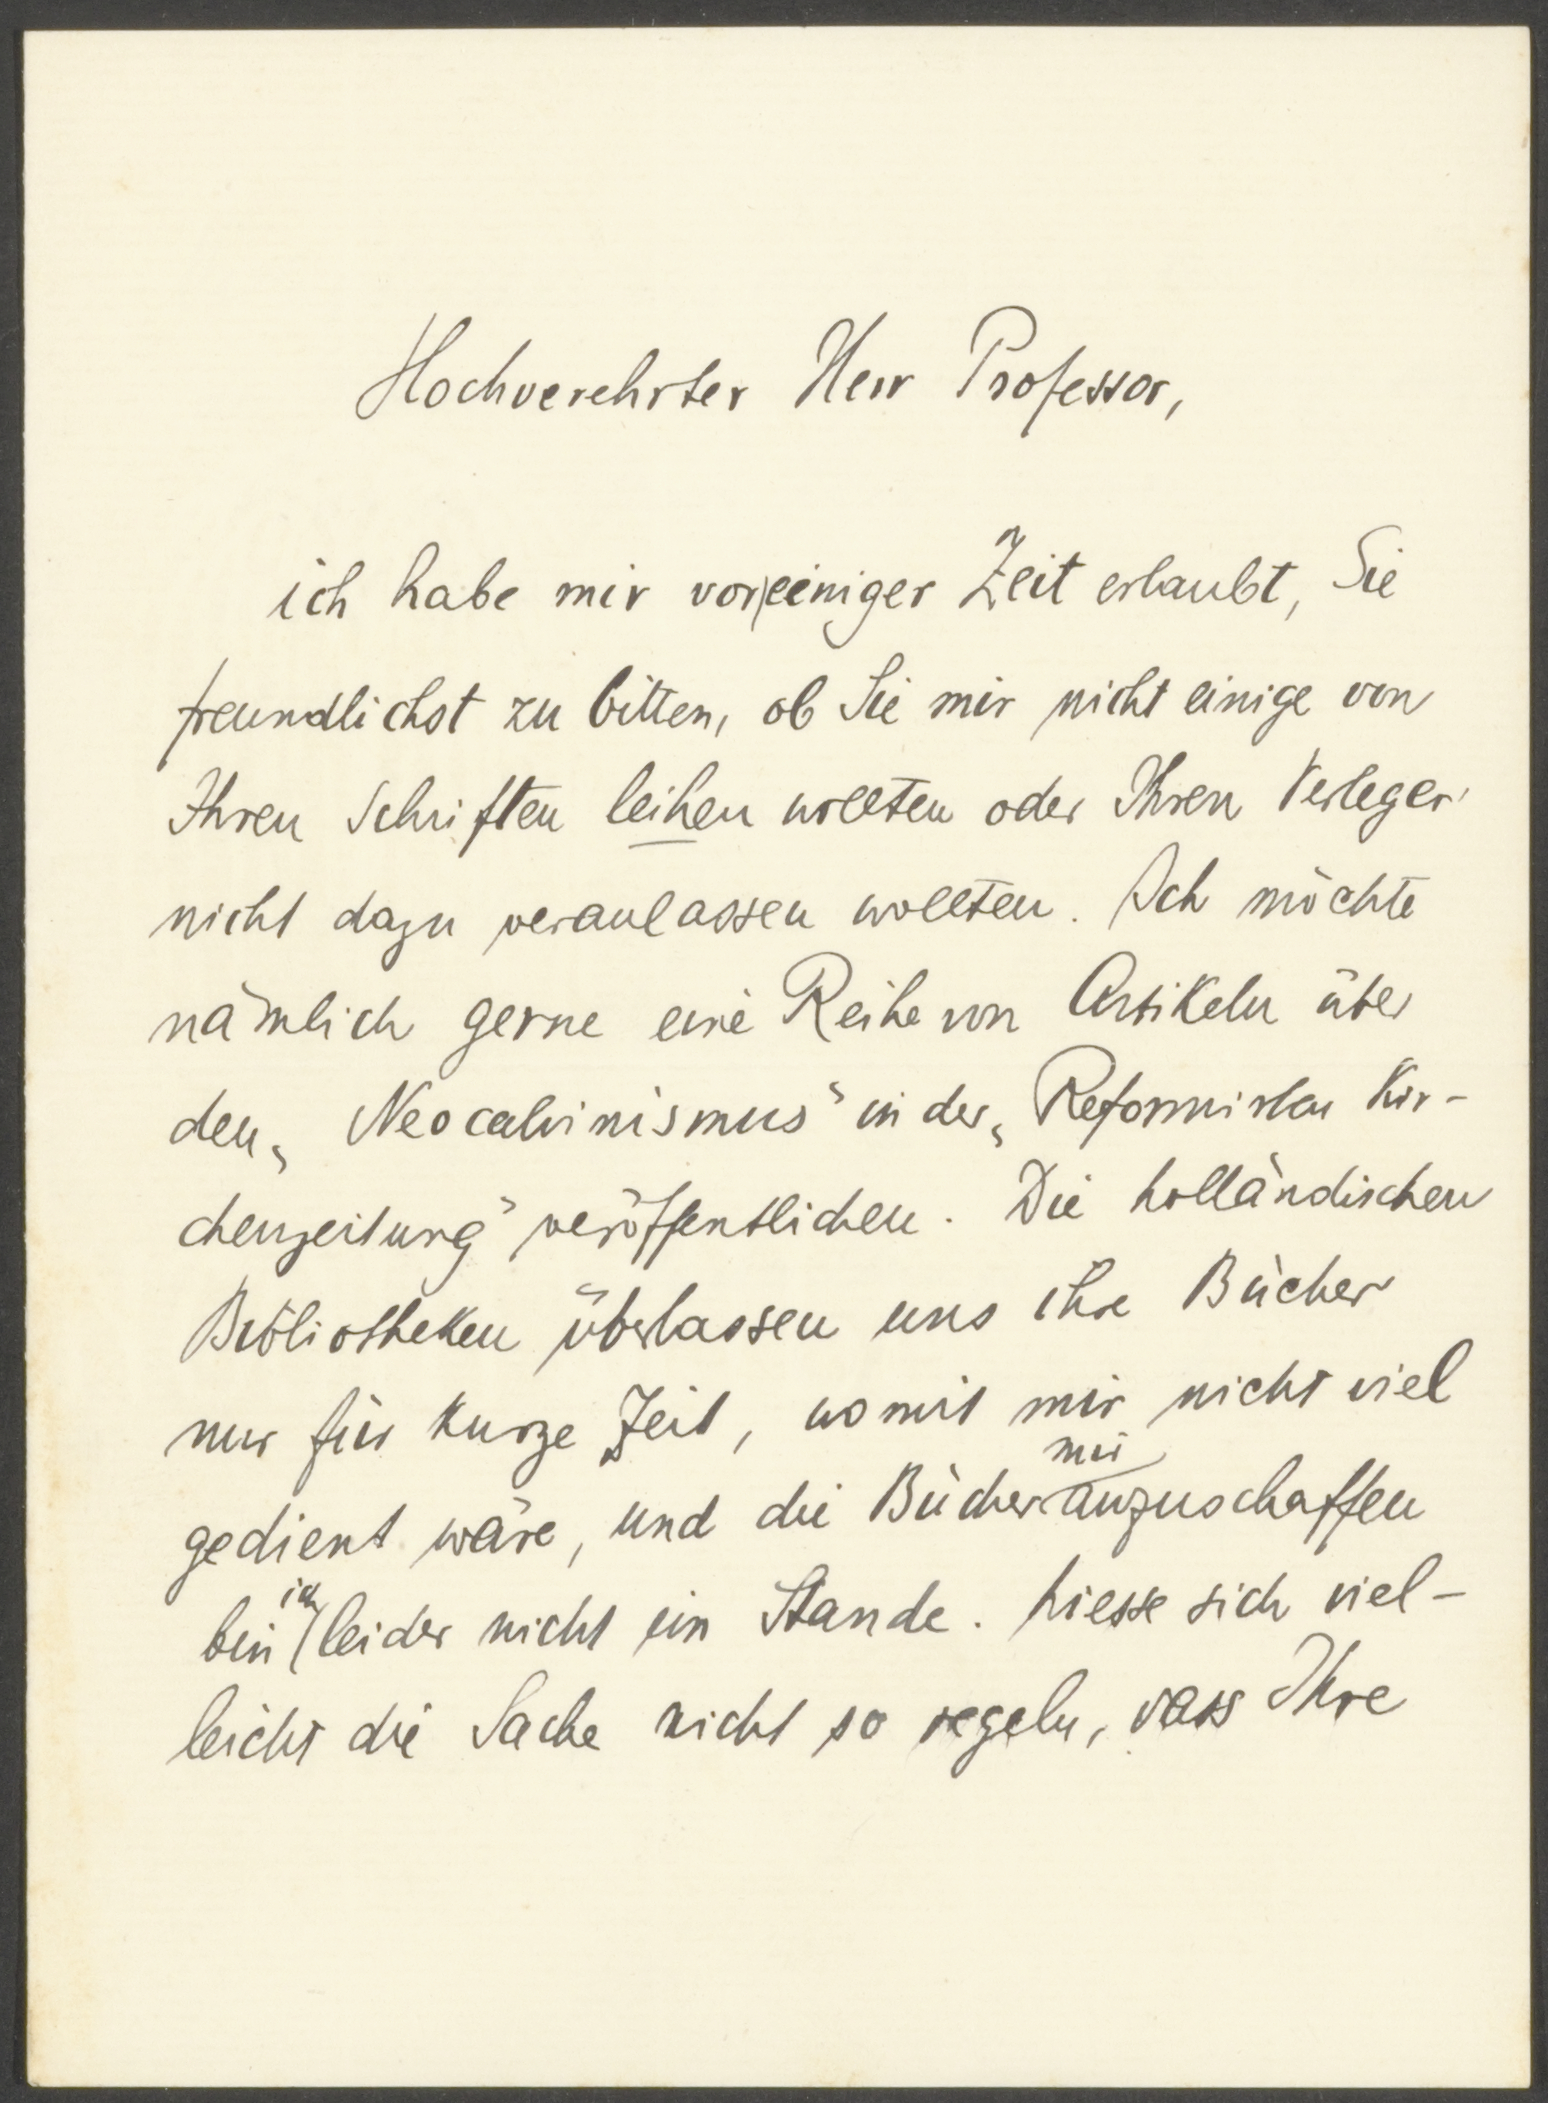 Hochverehrter Herr Professor,
ich habe mir vor einiger Zeit erlaubt, Sie
freundlichst zu bitten, ob Sie mir nicht einige von
Ihren Schriften leihen wollten oder Ihren Verleger
nicht dazu veranlassen wollten. Ich möchte
nämlich gerne eine Reihe von Artikeln über
den „Neocalvinismus“ in der „Reformierten Kir-
chenzeitung“ veröffentlichen. Die holländischen
Bibliotheken überlassen uns ihre Bücher
nur für kurze Zeit, womit mir nicht viel
mir
gedient wäre, und die Bücher anzuschaffen
ich
bin leider nicht im Stande. Liesse sich viel-
leicht die Sache nicht so regeln, dass Ihre